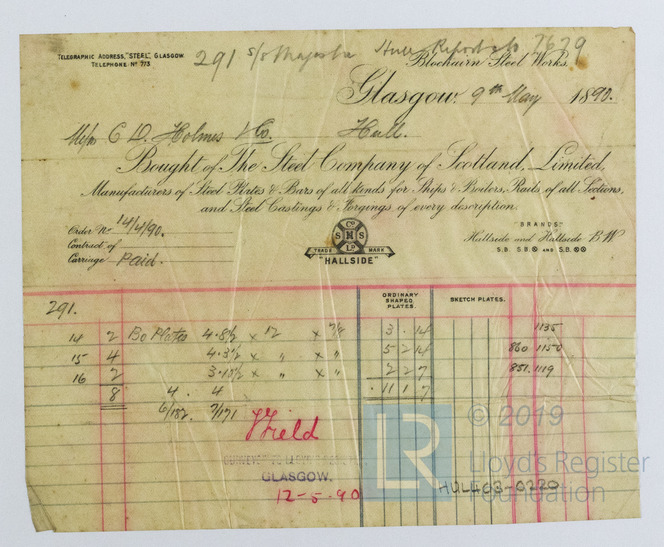 TELEGRAPHIC ADDRESS, "STEEL", GLASGOW.
TELEPHONE Nº 773
291 S/S Majestic Hull Report No 7679
Blochairn Steel Works.
Glasgow. 9th May 1890.
Mess C. D. Holmes & Co. Hull.
Bought of The Steel Company of Scotland, Limited,
Manufacturers of Steel Plates & Bars of all kinds for Ships & Boilers, Rails of all Sections,
and Steel Castings & Forgings of every description.
Order No. 14/4/90.
Contract of
Carriage Paid.
Cº
S H S
LD
TRADE MARK
"HALLSIDE"
"BRANDS"
Hallside and Hallside B.W
S.B. S.B.⊗ AND S.B.⊗⊗
ORDINARY SHAPED PLATES.
SKETCH PLATES.
291.
14 2 Bo Plates 4.8½ x 12 x 7/2 3 . 14 1135
15 4 4.3½ x " x " 5 2 14 860 1150
16 2 x " x " 2 2 7 851 1119
8 4. 4 11 1 7
6/182. 7/171
GLASGOW.
12-5.90
LR
© 2019
Lloyd's Register
Foundation
HUL463-0220